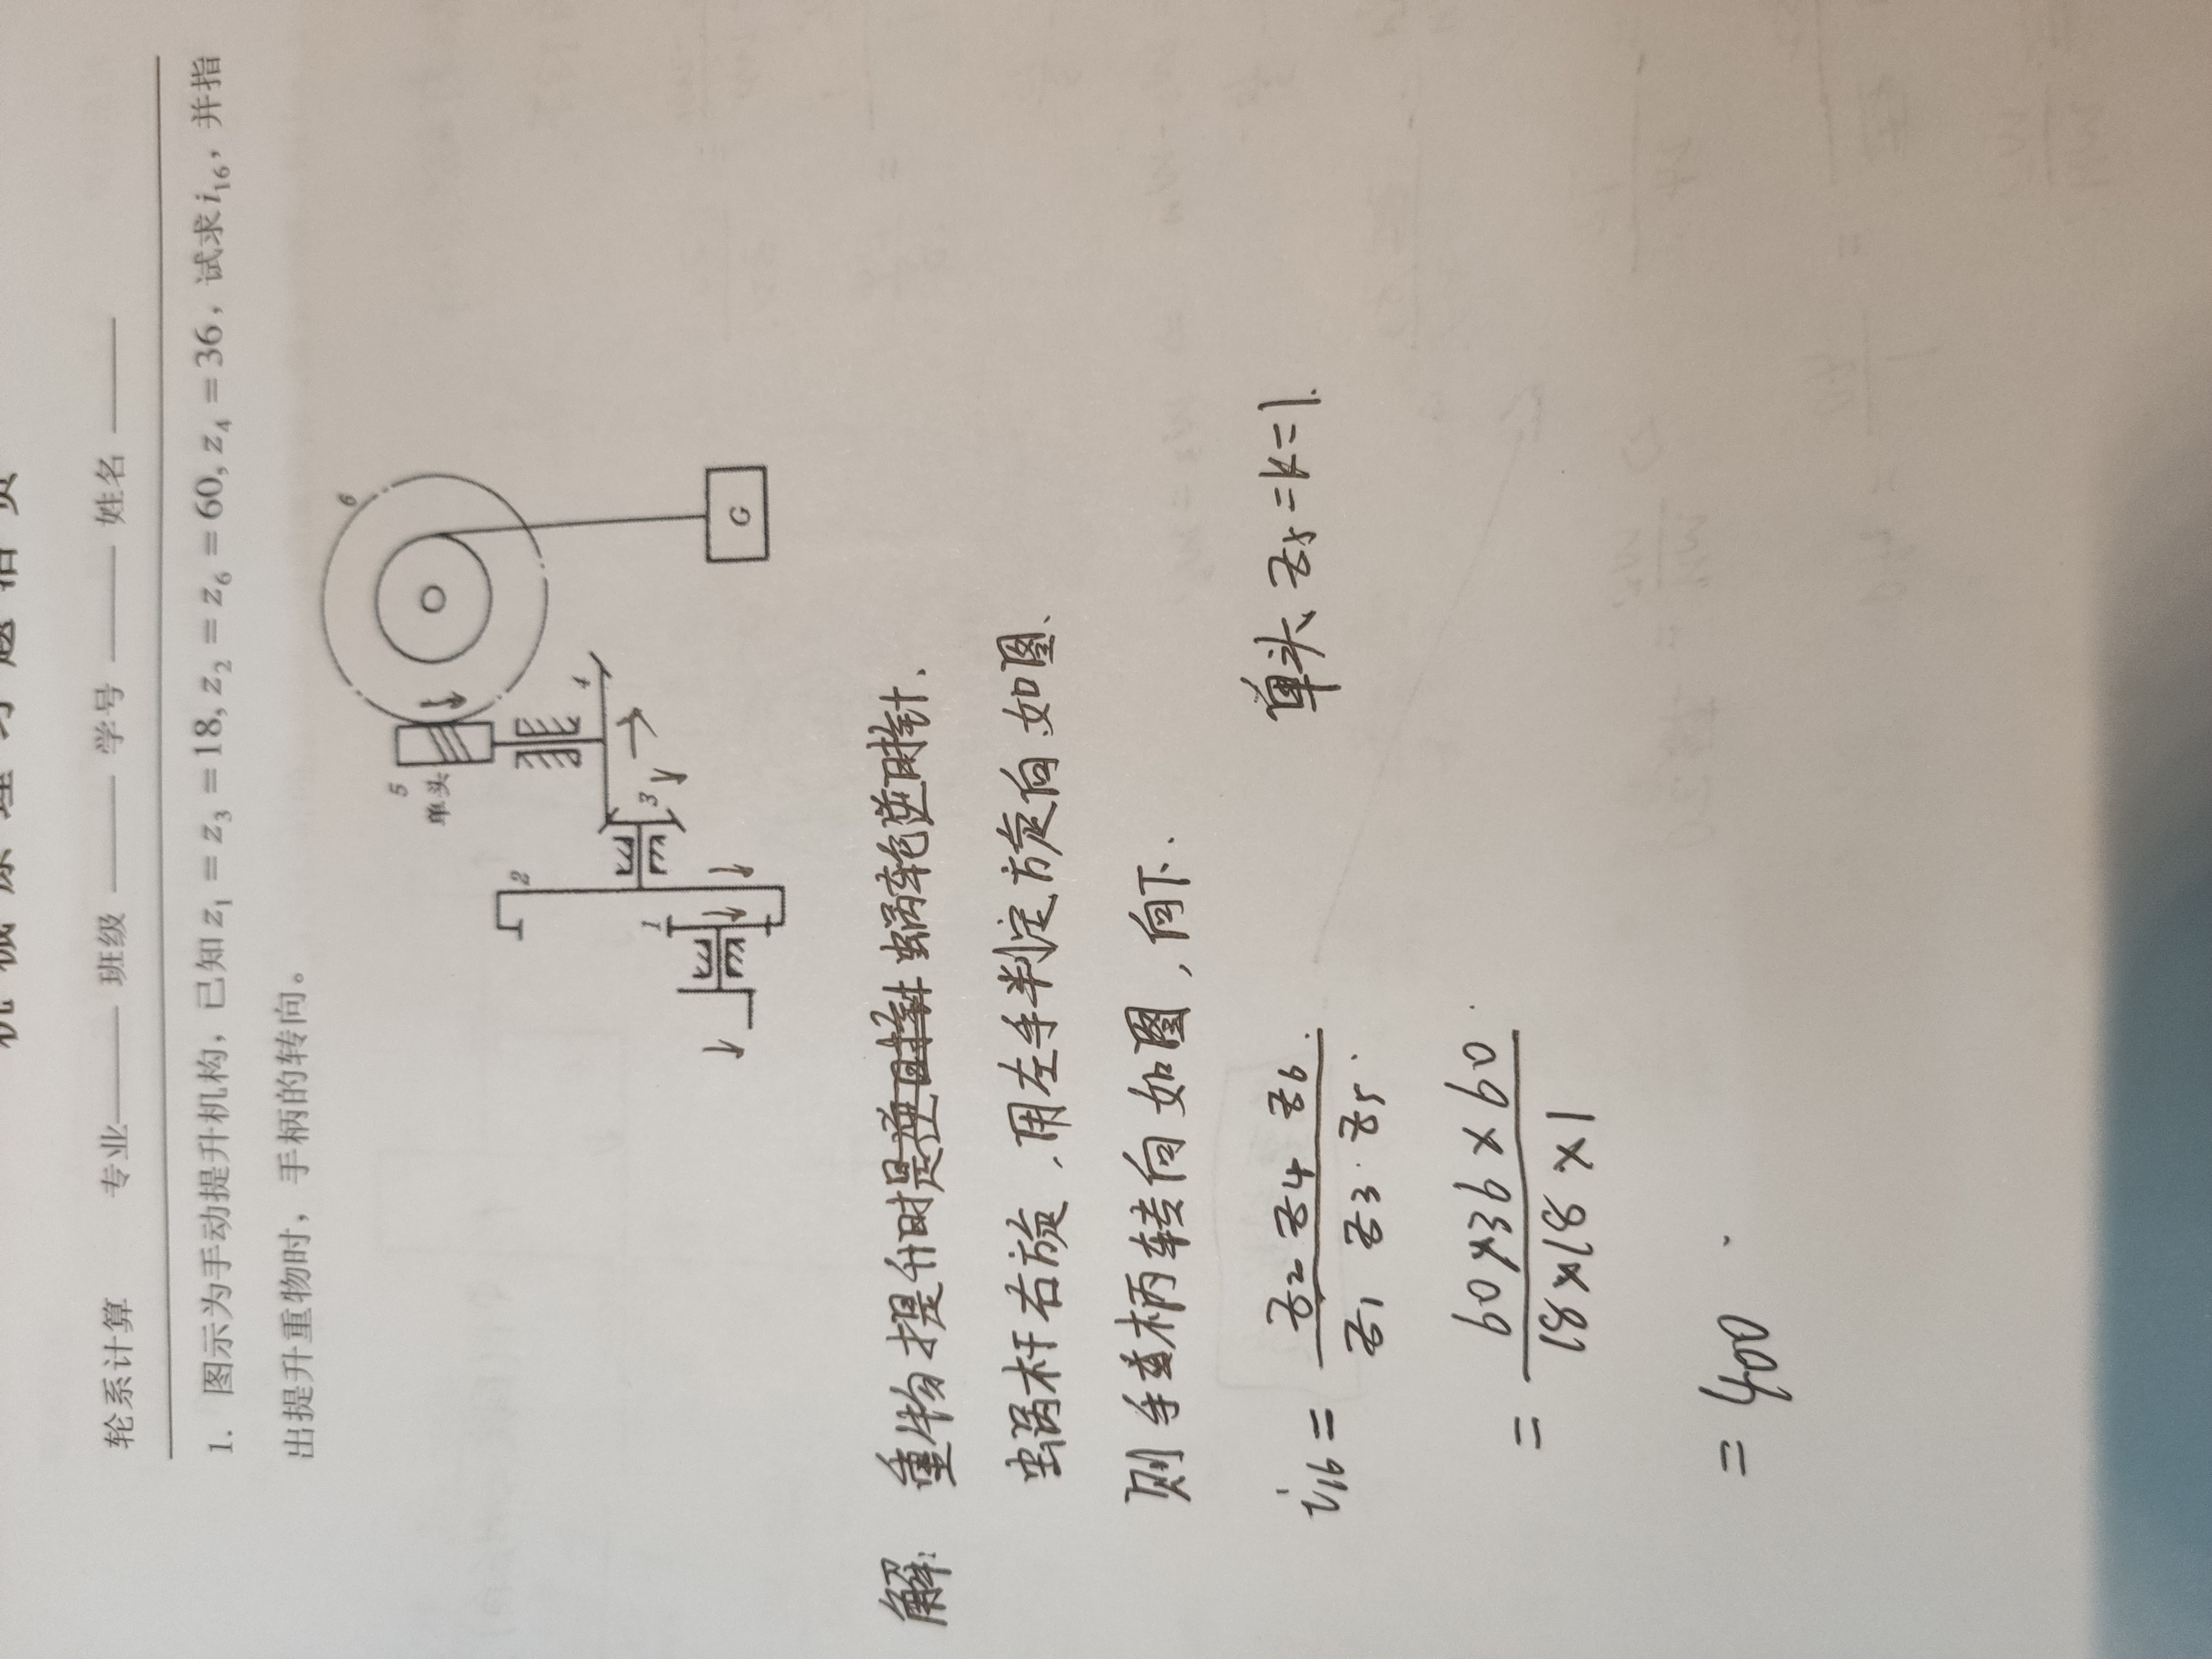 机械原理习题活页
轮系计算 专业 班级 学号 姓名
1. 图示为手动提升机构，已知 z₁ = z₃ = 18, z₂ = z₆ = 60, z₄ = 36，试求 i₁₆，并指
出提升重物时，手柄的转向。
6
5
单头
2
4
1
3
G
解: 重物提升时是逆时针 蜗轮逆时针.
蜗杆右旋，用左手判定方旋向如图.
则手柄转向如图，向下.
i₁₆ = z₂ z₄ z₆ / z₁ z₃ z₅
单头 z₅ = k = 1.
= 60×36×60 / 18×18×1
= 400